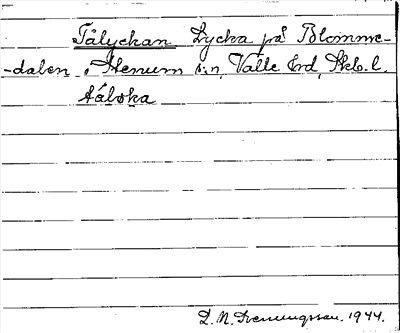 Tålyckan Lycka på Blomme-
-dalen i Stenum s:n, Valle hd, Skb. l.
tålɷka
L. N. Svenungsson. 1944.